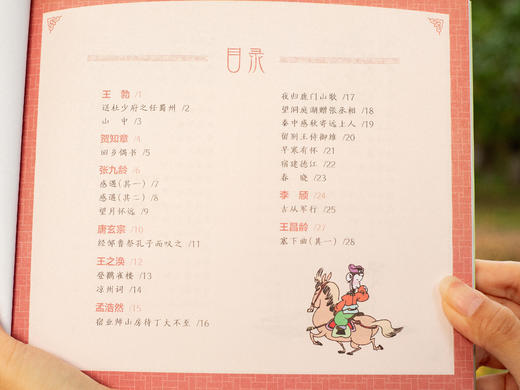 目录
王 勃 /1
送杜少府之任蜀州 /2
山 中 /3
贺知章 /4
回乡偶书 /5
张九龄 /6
感遇(其一) /7
感遇(其二) /8
望月怀远 /9
唐玄宗 /10
经邹鲁祭孔子而叹之 /11
王之涣 /12
登鹳雀楼 /13
凉州词 /14
孟浩然 /15
宿业师山房待丁大不至 /16
夜归鹿门山歌 /17
望洞庭湖赠张丞相 /18
秦中感秋寄远上人 /19
留别王侍御维 /20
早寒有怀 /21
宿建德江 /22
春 晓 /23
李 颀 /24
古从军行 /25
王昌龄 /27
塞下曲(其一) /28